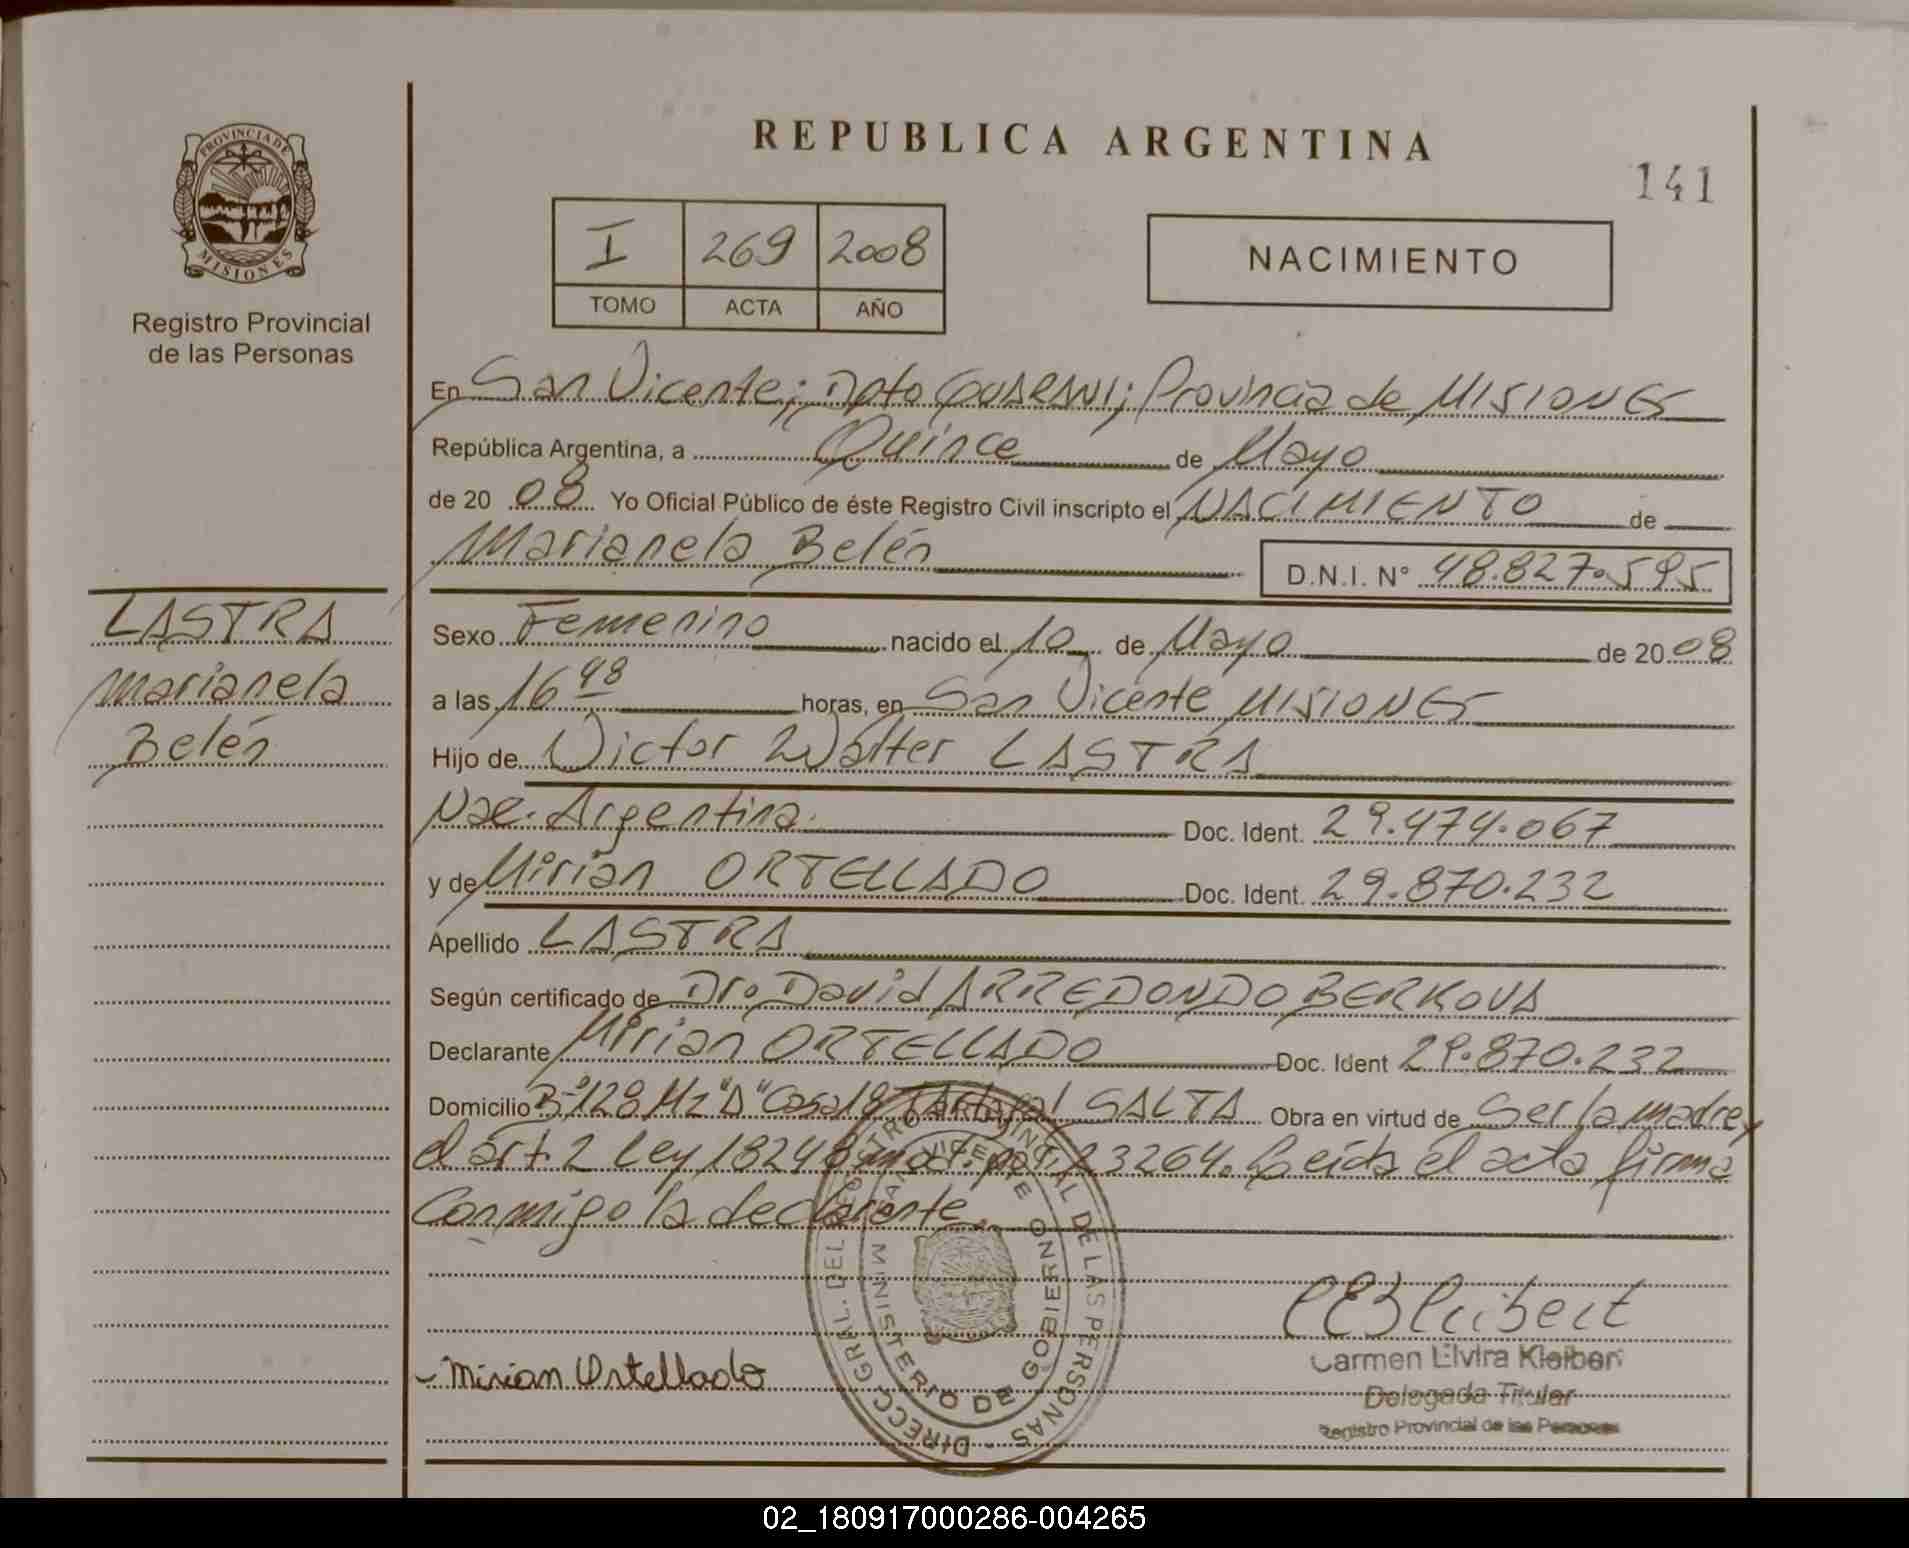 PROVINCIA DE
MISIONES
Registro Provincial
de las Personas
LASTRA
Marianela
Belén
REPUBLICA ARGENTINA
141
I 269 2008
TOMO ACTA AÑO
NACIMIENTO
En San Vicente; Dpto GUARANI; Provincia de MISIONES
República Argentina, a Quince de Mayo
de 2008 Yo Oficial Público de éste Registro Civil inscripto el NACIMIENTO de
Marianela Belén D.N.I. N° 48.827.595
Sexo Femenino nacido el 10 de Mayo de 2008
a las 16 48 horas, en San Vicente MISIONES
Hijo de Victor Walter LASTRA
Nac. Argentina. Doc. Ident. 29.474.067
y de Mirian ORTELLADO Doc. Ident. 29.870.232
Apellido LASTRA
Según certificado de Dr. David ARREDONDO BERKOVA
Declarante Mirian ORTELLADO Doc. Ident 29.870.232
Domicilio B° 128 Mz "A" Casa 18 SALTA Obra en virtud de Ser la madre y
el art. 2 Ley 18248 mod. por 23264. Leída el acta firma
Conmigo la declarante
DIRECC. GRAL. DEL REGISTRO PROVINCIAL DE LAS PERSONAS
MINISTERIO DE GOBIERNO
SAN VICENTE
Mirian Ortellado
CEKleibert
Carmen Elvira Kleibert
Delegada Titular
Registro Provincial de las Personas
02_180917000286-004265